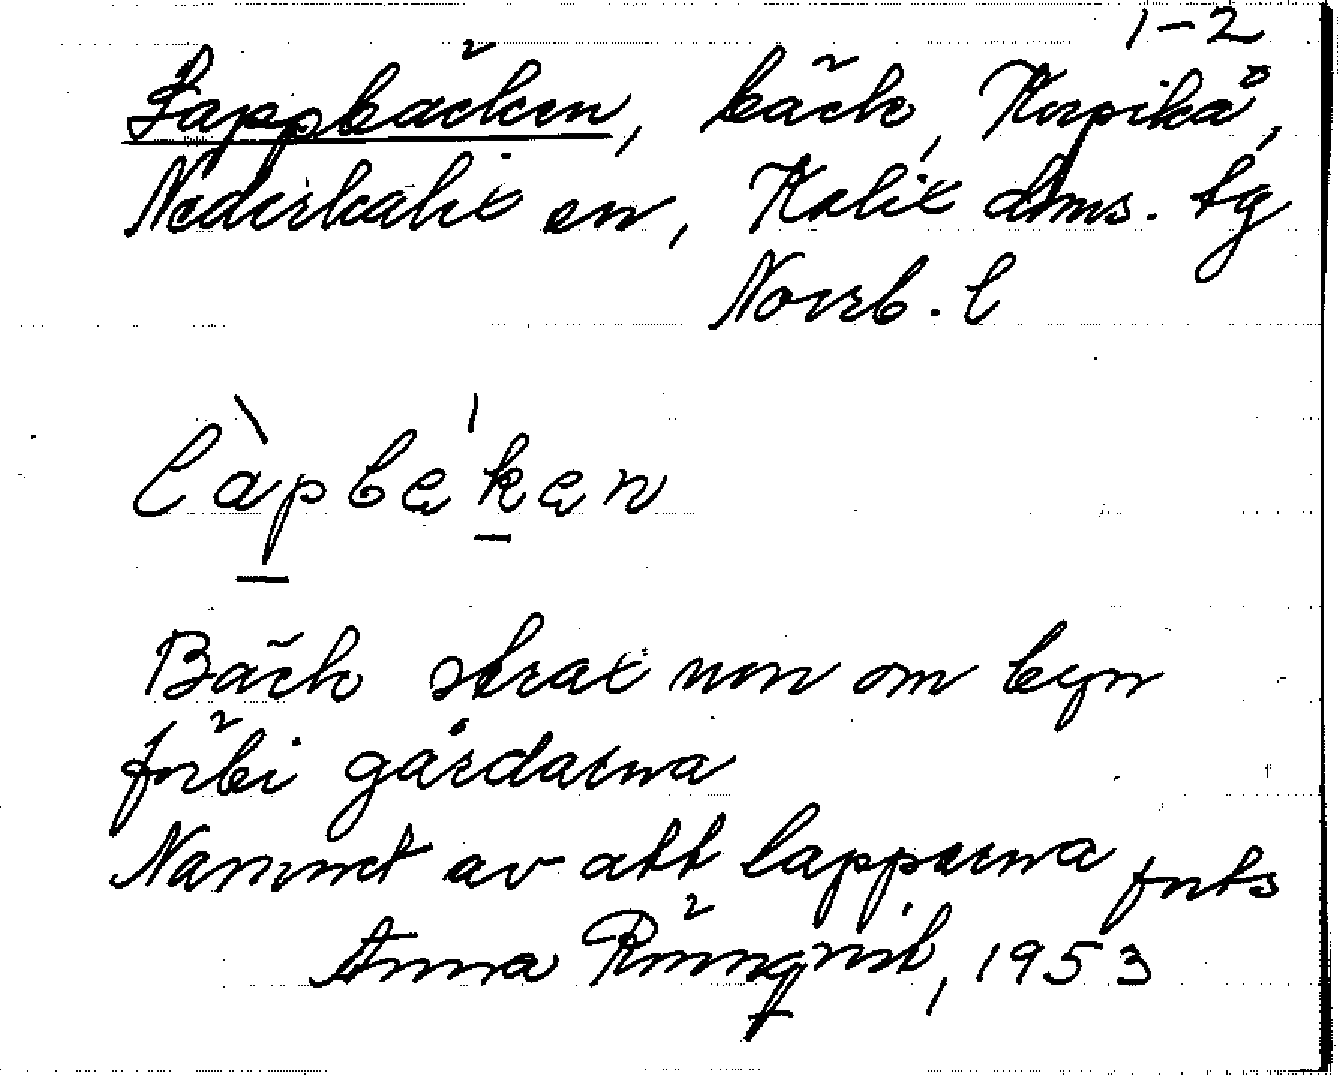 1-2
Lappbäcken, bäck, Korpikå,
Nederkalix sn, Kalix dms. tg
Norrb. l
làpbę'kęn
Bäck strax norr om byn
förbi gårdarna
Namnet av att lapparna forts
Anna Rönnqvist, 1953